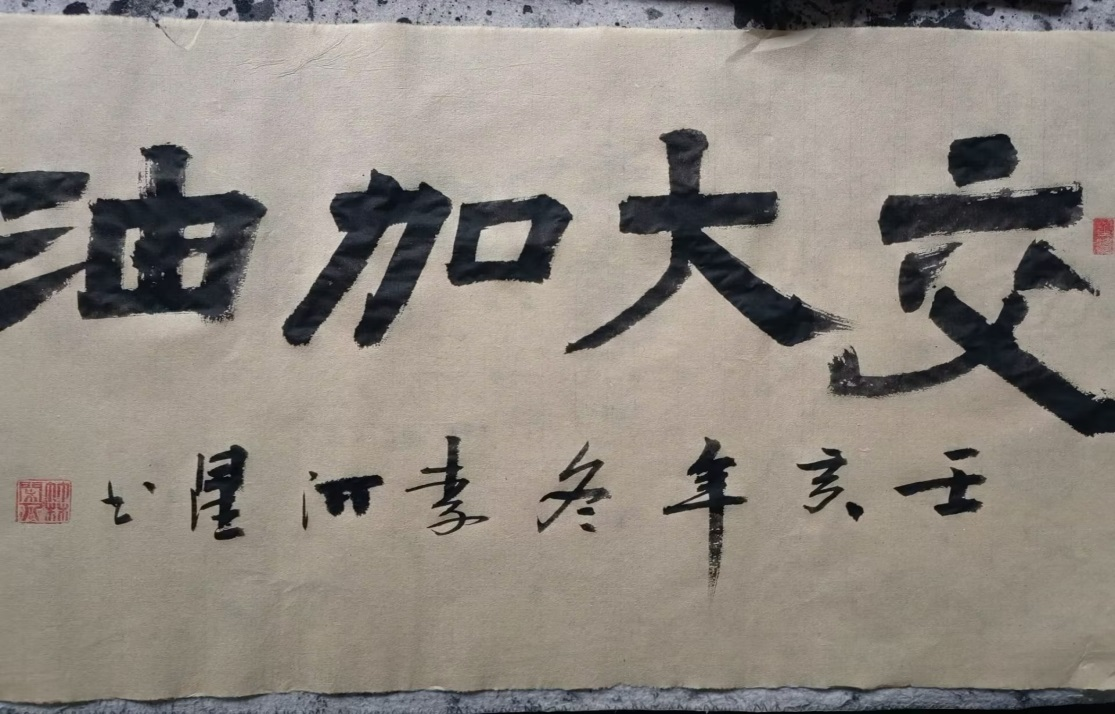 交大加油
壬亥年冬李书
竹林